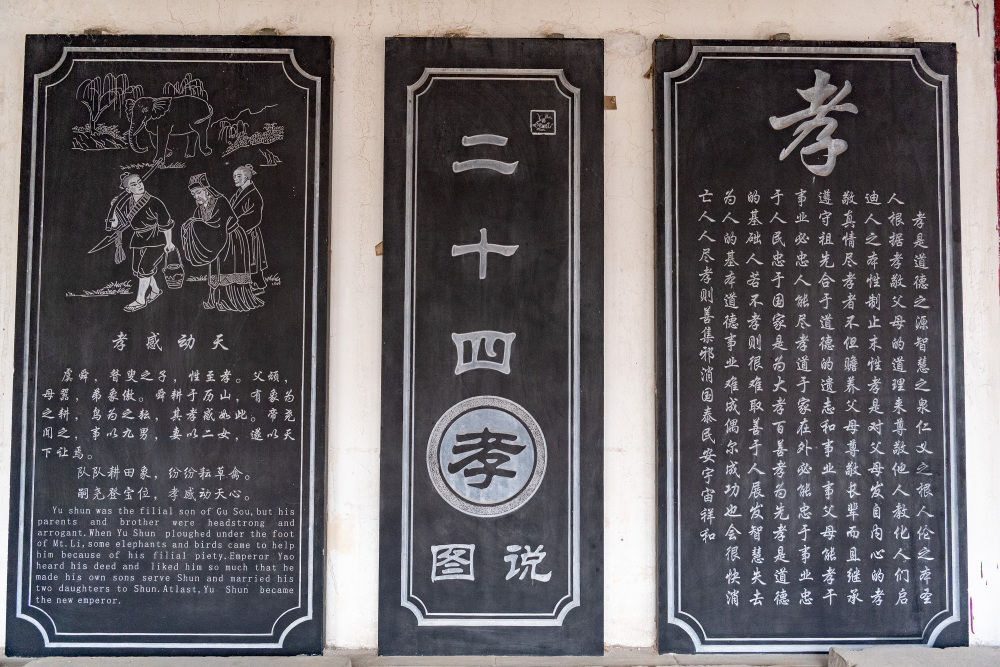 孝感动天
虞舜，瞽叟之子，性至孝。父顽，
母嚚，弟象傲。舜耕于历山，有象为
之耕，鸟为之耘，其孝感如此。帝尧
闻之，事以九男，妻以二女，遂以天
下让焉。
队队耕田象，纷纷耘草禽。
嗣尧登宝位，孝感动天心。
Yu shun was the filial son of Gu Sou,but his
parents and brother were headstrong and
arrogant.When Yu Shun ploughed under the foot
of Mt.Li,some elephants and birds came to help
him because of his filial piety.Emperor Yao
heard his deed and liked him so much that he
made his own sons serve Shun and married his
two daughters to Shun.Atlast,Yu Shun became
the new emperor.
二十四孝
图说
孝
孝是道德之源智慧之泉仁义之根人伦之本圣
人根据孝敬父母的道理来尊敬他人教化人们启
迪人之本性制止末性孝是对父母发自内心的孝
敬真情尽孝者不但赡养父母尊敬长辈而且继承
遵守祖先合于道德的遗志和事业事父母能孝干
事业必忠人能尽孝道于家在外必能忠于事业忠
于人民忠于国家是为大孝百善孝为先孝是道德
的基础人若不孝则很难取善于人展发智慧失去
为人的基本道德事业难成偶尔成功也会很快消
亡人人尽孝则善集邪消国泰民安宇宙祥和